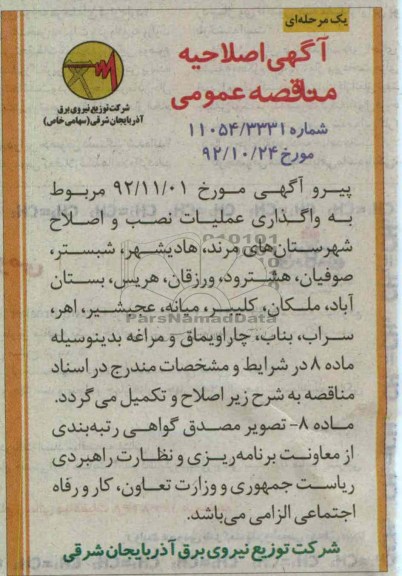 یک مرحله‌ای
آگهی اصلاحیه
مناقصه عمومی
شماره ۱۱۰۵۴/۳۳۳۱
مورخ ۹۲/۱۰/۲۴
شرکت توزیع نیروی برق
آذربایجان شرقی (سهامی خاص)
پیرو آگهی مورخ ۹۲/۱۱/۰۱ مربوط
به واگذاری عملیات نصب و اصلاح
شهرستان‌های مرند، هادیشهر، شبستر،
صوفیان، هشترود، ورزقان، هریس، بستان
آباد، ملکان، کلیبر، میانه، عجبشیر، اهر،
سراب، بناب، چاراویماق و مراغه بدینوسیله
ماده ۸ در شرایط و مشخصات مندرج در اسناد
مناقصه به شرح زیر اصلاح و تکمیل می‌گردد.
ماده ۸- تصویر مصدق گواهی رتبه‌بندی
از معاونت برنامه‌ریزی و نظارت راهبردی
ریاست جمهوری و وزارت تعاون، کار و رفاه
اجتماعی الزامی می‌باشد.
شرکت توزیع نیروی برق آذربایجان شرقی
ParsNamadData